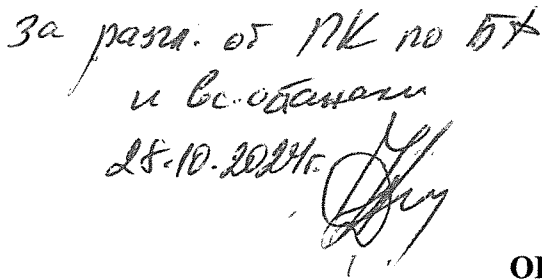 за разгл. от ПК по БФ
и вс. останали
28.10.2024г.